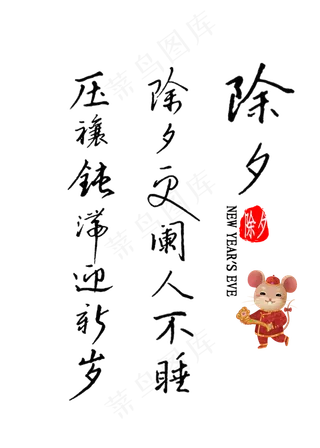 除夕
除夕
NEW YEAR'S EVE
除夕更阑人不睡
压禳钝滞迎新岁
菜鸟图库